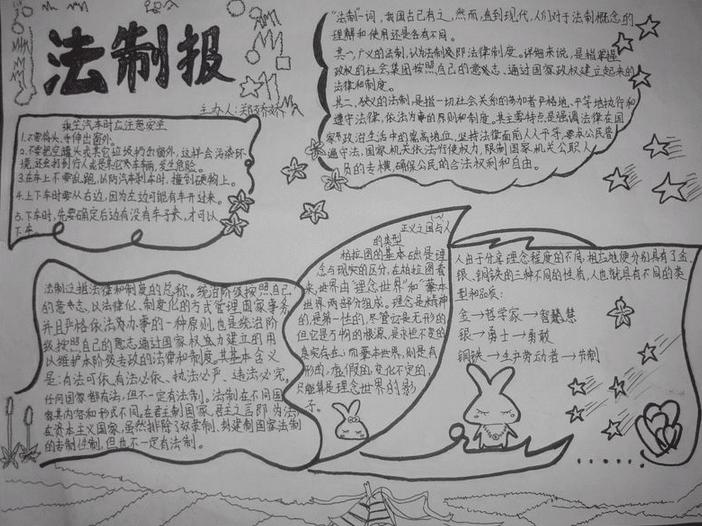 法制报
主办人:郑娇娇
乘坐汽车时应注意安全
1.不要将头、手伸出窗外。
2.不要把空罐头或其它垃圾扔出窗外,这样会污染环
境,还会打到行人或是其它汽车车辆,发生危险。
3.在车上不要乱跑,以防汽车刹车时,撞到硬物上。
4.上下车时要从右边,因为左边可能有车开过来。
5.下车时,先要确定后边有没有车子来,才可以
下车。
"法制"一词,我国古已有之,然而,直到现代,人们对于法制概念的
理解和使用还是各有不同。
其一、广义的法制,认为法制即法律制度。详细来说,是指掌握
政权的社会集团按照自己的意志,通过国家政权建立起来的
法律和制度。
其二、狭义的法制,是指一切社会关系的参加者严格地、平等地执行和
遵守法律,依法办事的原则和制度。其主要特点是强调法律在国
家政治生活中的崇高地位,坚持法律面前人人平等,要求公民普
遍守法,国家机关依法行使权力,限制国家机关公职人
员的专横,确保公民的合法权利和自由。
法制这是法律和制度的总称。统治阶级按照自己
的意志,以法律化、制度化的方式管理国家事务,
并且严格依法办事的一种原则,也是统治阶
级按照自己的意志通过国家权力建立的用
以维护本阶级专政的法律和制度,其基本含义
是:有法可依,有法必依,执法必严,违法必究,
任何国家都有法,但不一定有法制。法制在不同国
家其内容和形式不同,在君主制国家,君主之言即为法,
在资本主义国家,虽然排除了奴隶制、封建制国家法制
的专制性制,但也不一定有法制。
正义之国与人
的类型
柏拉图的基本企图是理
念与现实的区分,在柏拉图看
来,世界由"理念世界"和"基本
世界"两部分组成。理念是精神
的,是第一性的,尽管它是无形的
但它是万物的根源,是永恒不变的
真实存在;而基本世界,则是有
形的,虚假的,变化不定的,
只能算是理念世界的影
子。
人由于分享理念程度的不同,相应地便分别具有了金、
银、铜铁的三种不同的性质,人也就具有不同的类
型和品质:
金→哲学家→智慧
银→勇士→勇敢
铜铁→生产劳动者→节制